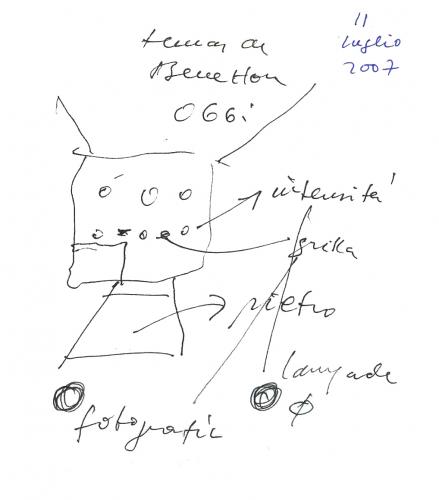 11
luglio
2007
Benetton
OGGi
intensità
grilla
vietro
lampade
Φ
fotografie